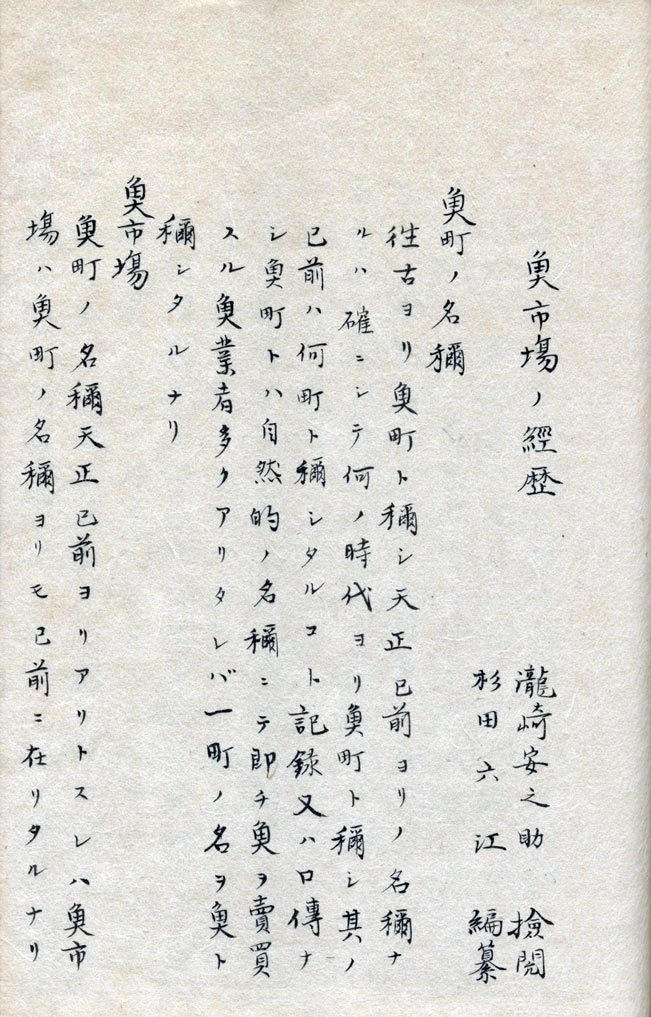 魚市場ノ經歴
瀧崎安之助 撿閲
杉田六江 編纂
魚町ノ名稱
往古ヨリ魚町ト稱シ天正已前ヨリノ名稱ナ
ルハ確ニシテ何ノ時代ヨリ魚町ト稱シ其ノ
已前ハ何町ト稱シタルコト記録又ハ口傳ナ
シ魚町トハ自然的ノ名稱ニテ即チ魚ヲ賣買
スル魚業者多クアリタレバ一町ノ名ヲ魚ト
稱シタルナリ
魚市場
魚町ノ名稱天正已前ヨリアリトスレハ魚市
場ハ魚町ノ名稱ヨリモ已前ニ在リタルナリ